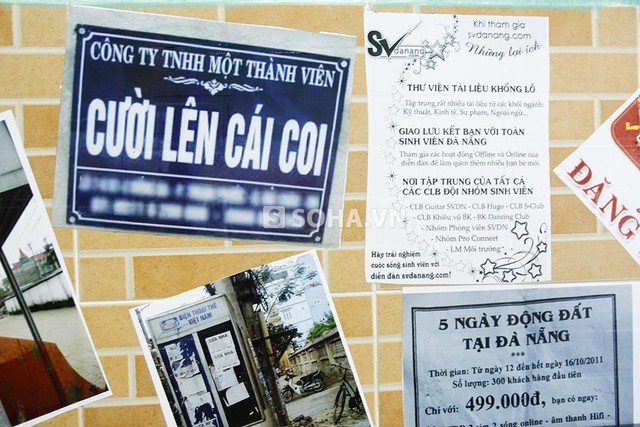 CÔNG TY TNHH MỘT THÀNH VIÊN
CƯỜI LÊN CÁI COI
SV
danang
Khi tham gia
svdanang.com
Những lợi ích
THƯ VIỆN TÀI LIỆU KHỔNG LỒ
Tập trung rất nhiều tài liệu từ các khối ngành:
Kỹ thuật, Kinh tế, Sư phạm, Ngoại ngữ...
GIAO LƯU KẾT BẠN VỚI TOÀN
SINH VIÊN ĐÀ NẴNG
Tham gia các hoạt động Offline và Online của
diễn đàn để làm quen thêm nhiều bạn bè mới.
NƠI TẬP TRUNG CỦA TẤT CẢ
CÁC CLB ĐỘI NHÓM SINH VIÊN
- CLB Guitar SVDN - CLB Hugo - CLB S-Club
- CLB Khiêu vũ BK - BK Dancing Club
- Nhóm Phóng viên SVDN
- Nhóm Pro Connect
- LM Môi trường
Hãy trải nghiệm
cuộc sống sinh viên với
diễn đàn svdanang.com!
SOHA.VN
ĐĂNG
ĐIỆN THOẠI THẺ
VIỆT NAM
SỬA NHÀ
SỬA NHÀ
5 NGÀY ĐỘNG ĐẤT
TẠI ĐÀ NẴNG
***
Thời gian: Từ ngày 12 đến hết ngày 16/10/2011
Số lượng: 300 khách hàng đầu tiên
Chỉ với: 499.000đ, bạn có ngay:
2 sim 2 sóng online - âm thanh Hifi -